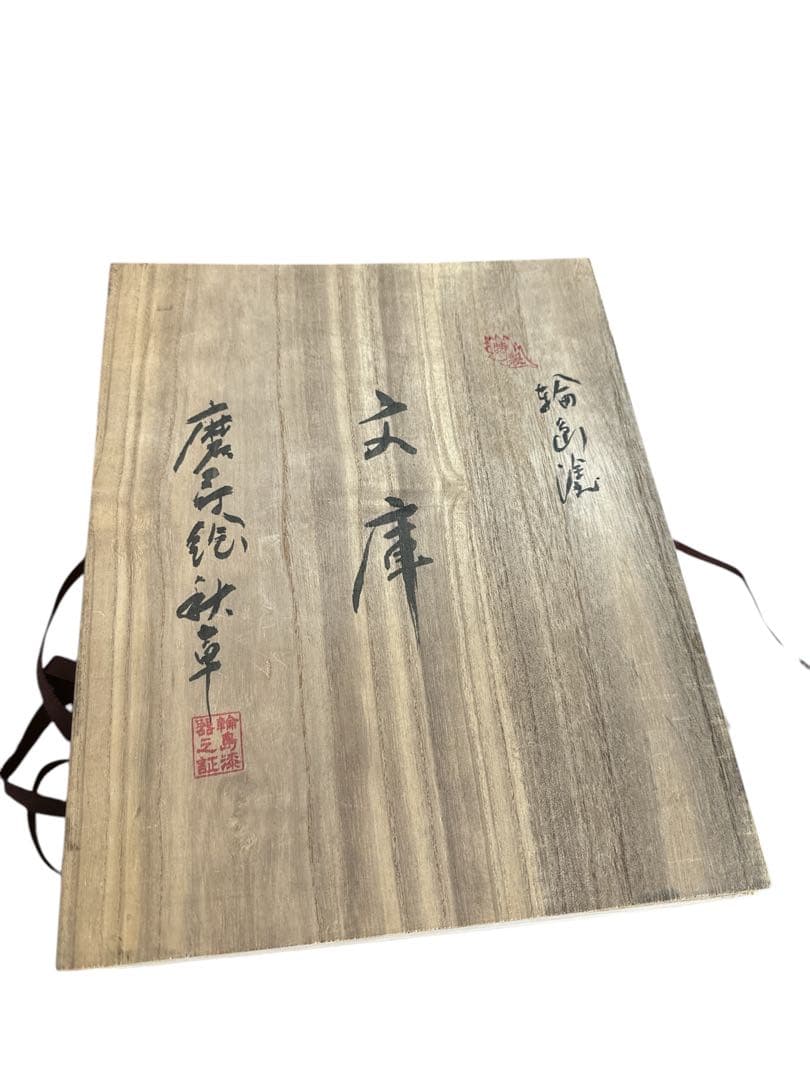 輪島塗
文庫
磨蒔絵秋草
輪島漆
器之証